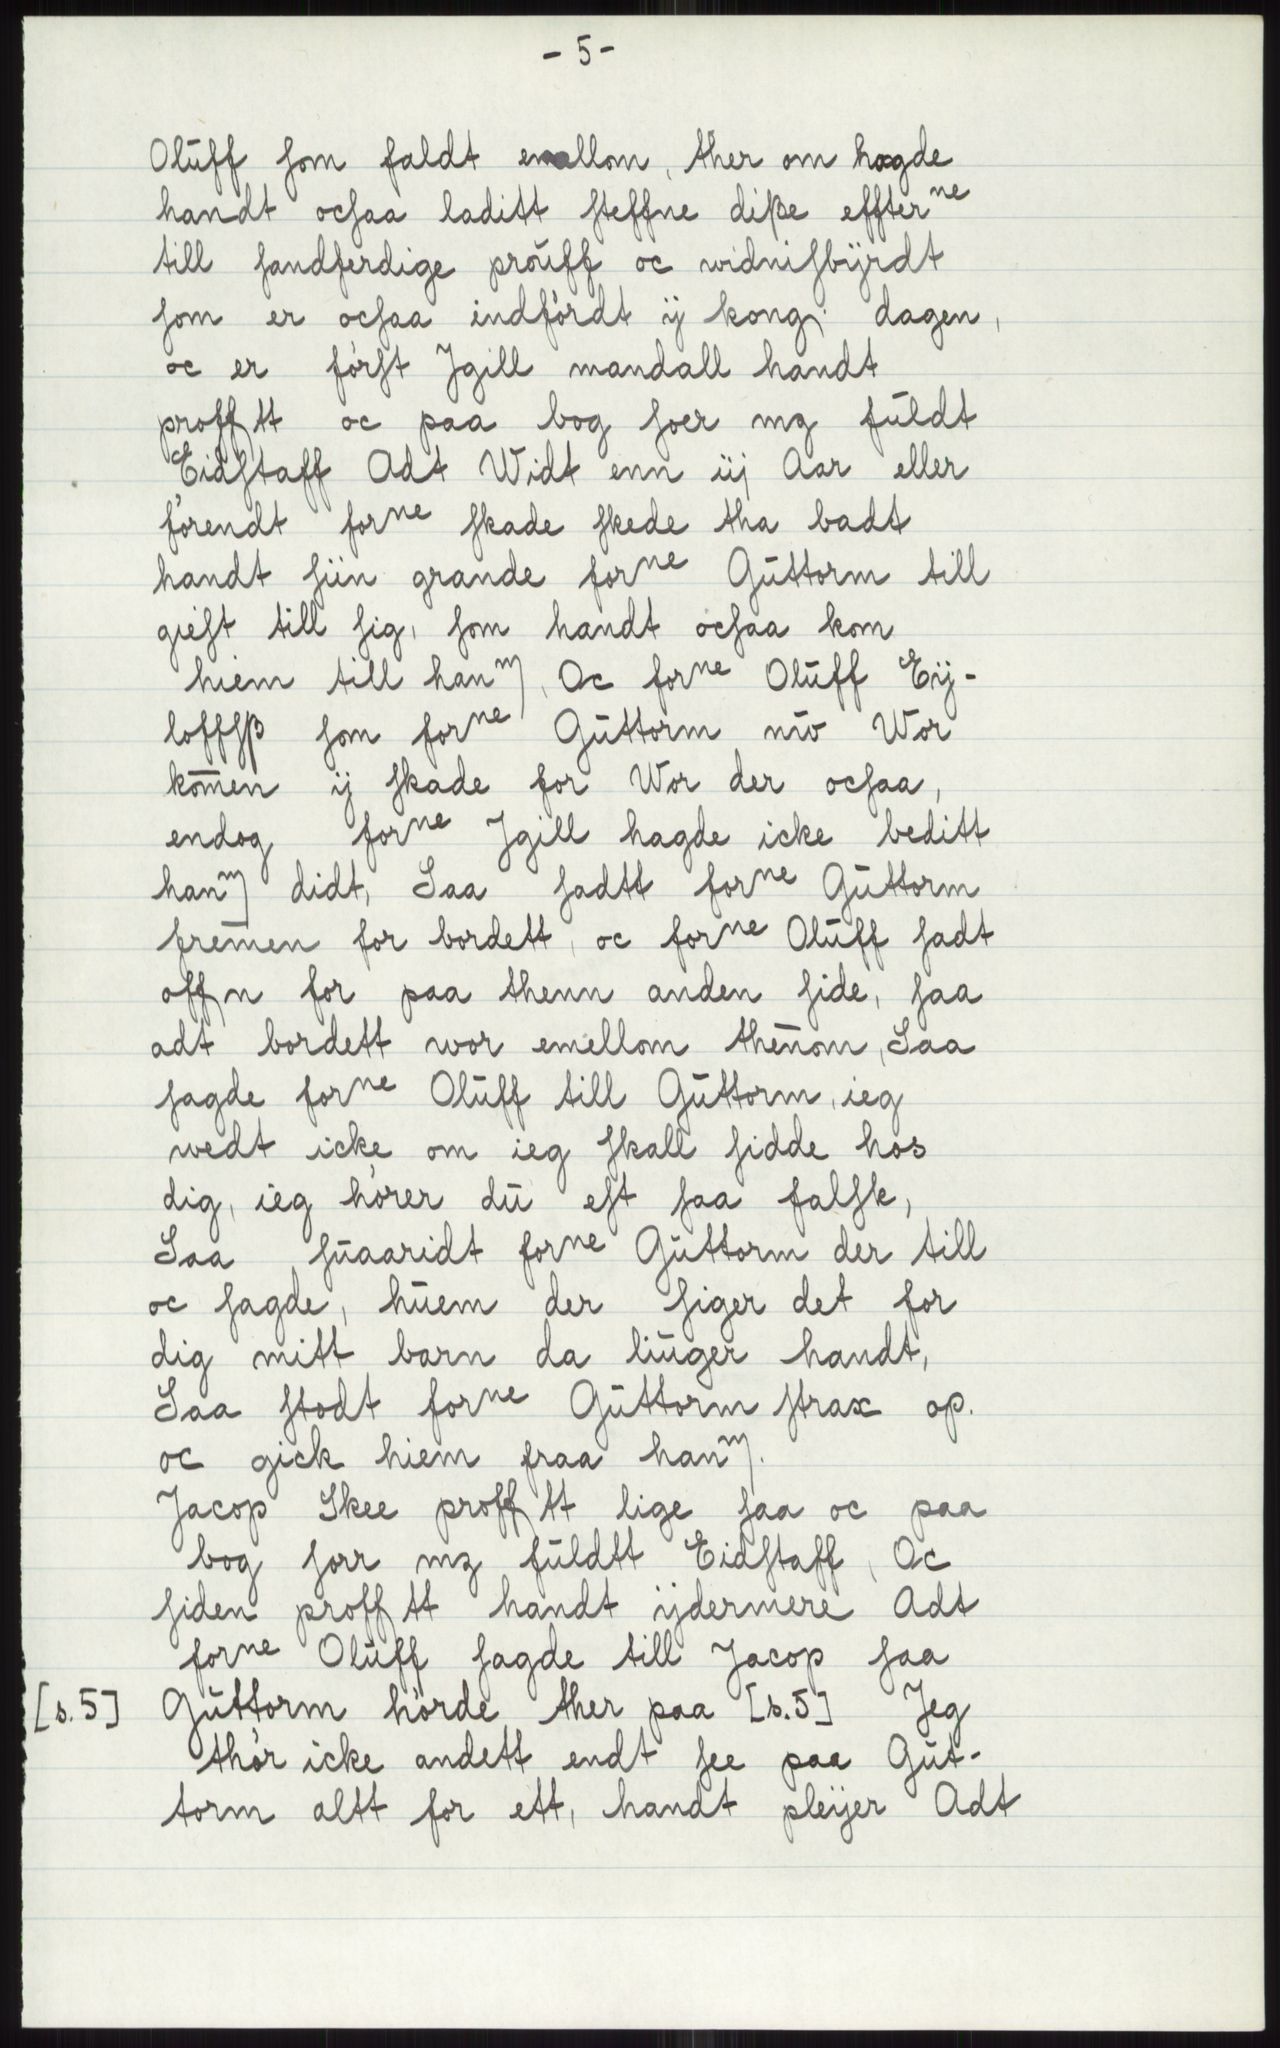 - 5 -
Olūff som faldt emellom, ther om hagde
handt ocsaa laditt steffne diße effterⁿᵉ
till sandferdige prōuff oc widnisbÿrdt
som er ocsaa indfórdt ÿ kong: dagen,
oc er fórst Jgill mandall handt
profftt oc paa bog soer mz fūldt
Eidstaff Adt Widt enn iij Aar eller
fórendt forⁿᵉ skade skede tha badt
handt siin grande forⁿᵉ Gūttorm till
giest till sig, som handt ocsaa kom
hiem till hanᵐ, Oc forⁿᵉ Olūff Eÿ-
loffsß som forⁿᵉ Gūttorm nw Wor
kom̄en ÿ skade for Wor der ocsaa,
endog forⁿᵉ Jgill hagde icke beditt
hanᵐ didt, Saa sadtt forⁿᵉ Gūttorm
frem̄en for bordett, oc forⁿᵉ Olūff sadt
offn for paa thenn anden side, saa
adt bordett wor emellom then̄om, Saa
sagde forⁿᵉ Olūff till Gūttorm, ieg
wedt icke om ieg skall sidde hos
dig, ieg hórer dū est saa falsk,
Saa sūaaridt forⁿᵉ Gūttorm der till
oc sagde, hūem der siger det for
dig mitt barn da liūger handt,
Saa stodt forⁿᵉ Gūttorm strax op.
oc gick hiem fraa hanᵐ.
Jacop Skee profftt lige saa oc paa
bog sorr mz fūldtt Eidstaff, Oc
siden profftt handt ÿdermere Adt
forⁿᵉ Olūff sagde till Jacop saa
[s.5] Gūttorm hórde ther paa [s.5] Jeg
thór icke andett endt see paa Gūt-
torm altt for ett, handt pleÿer Adt